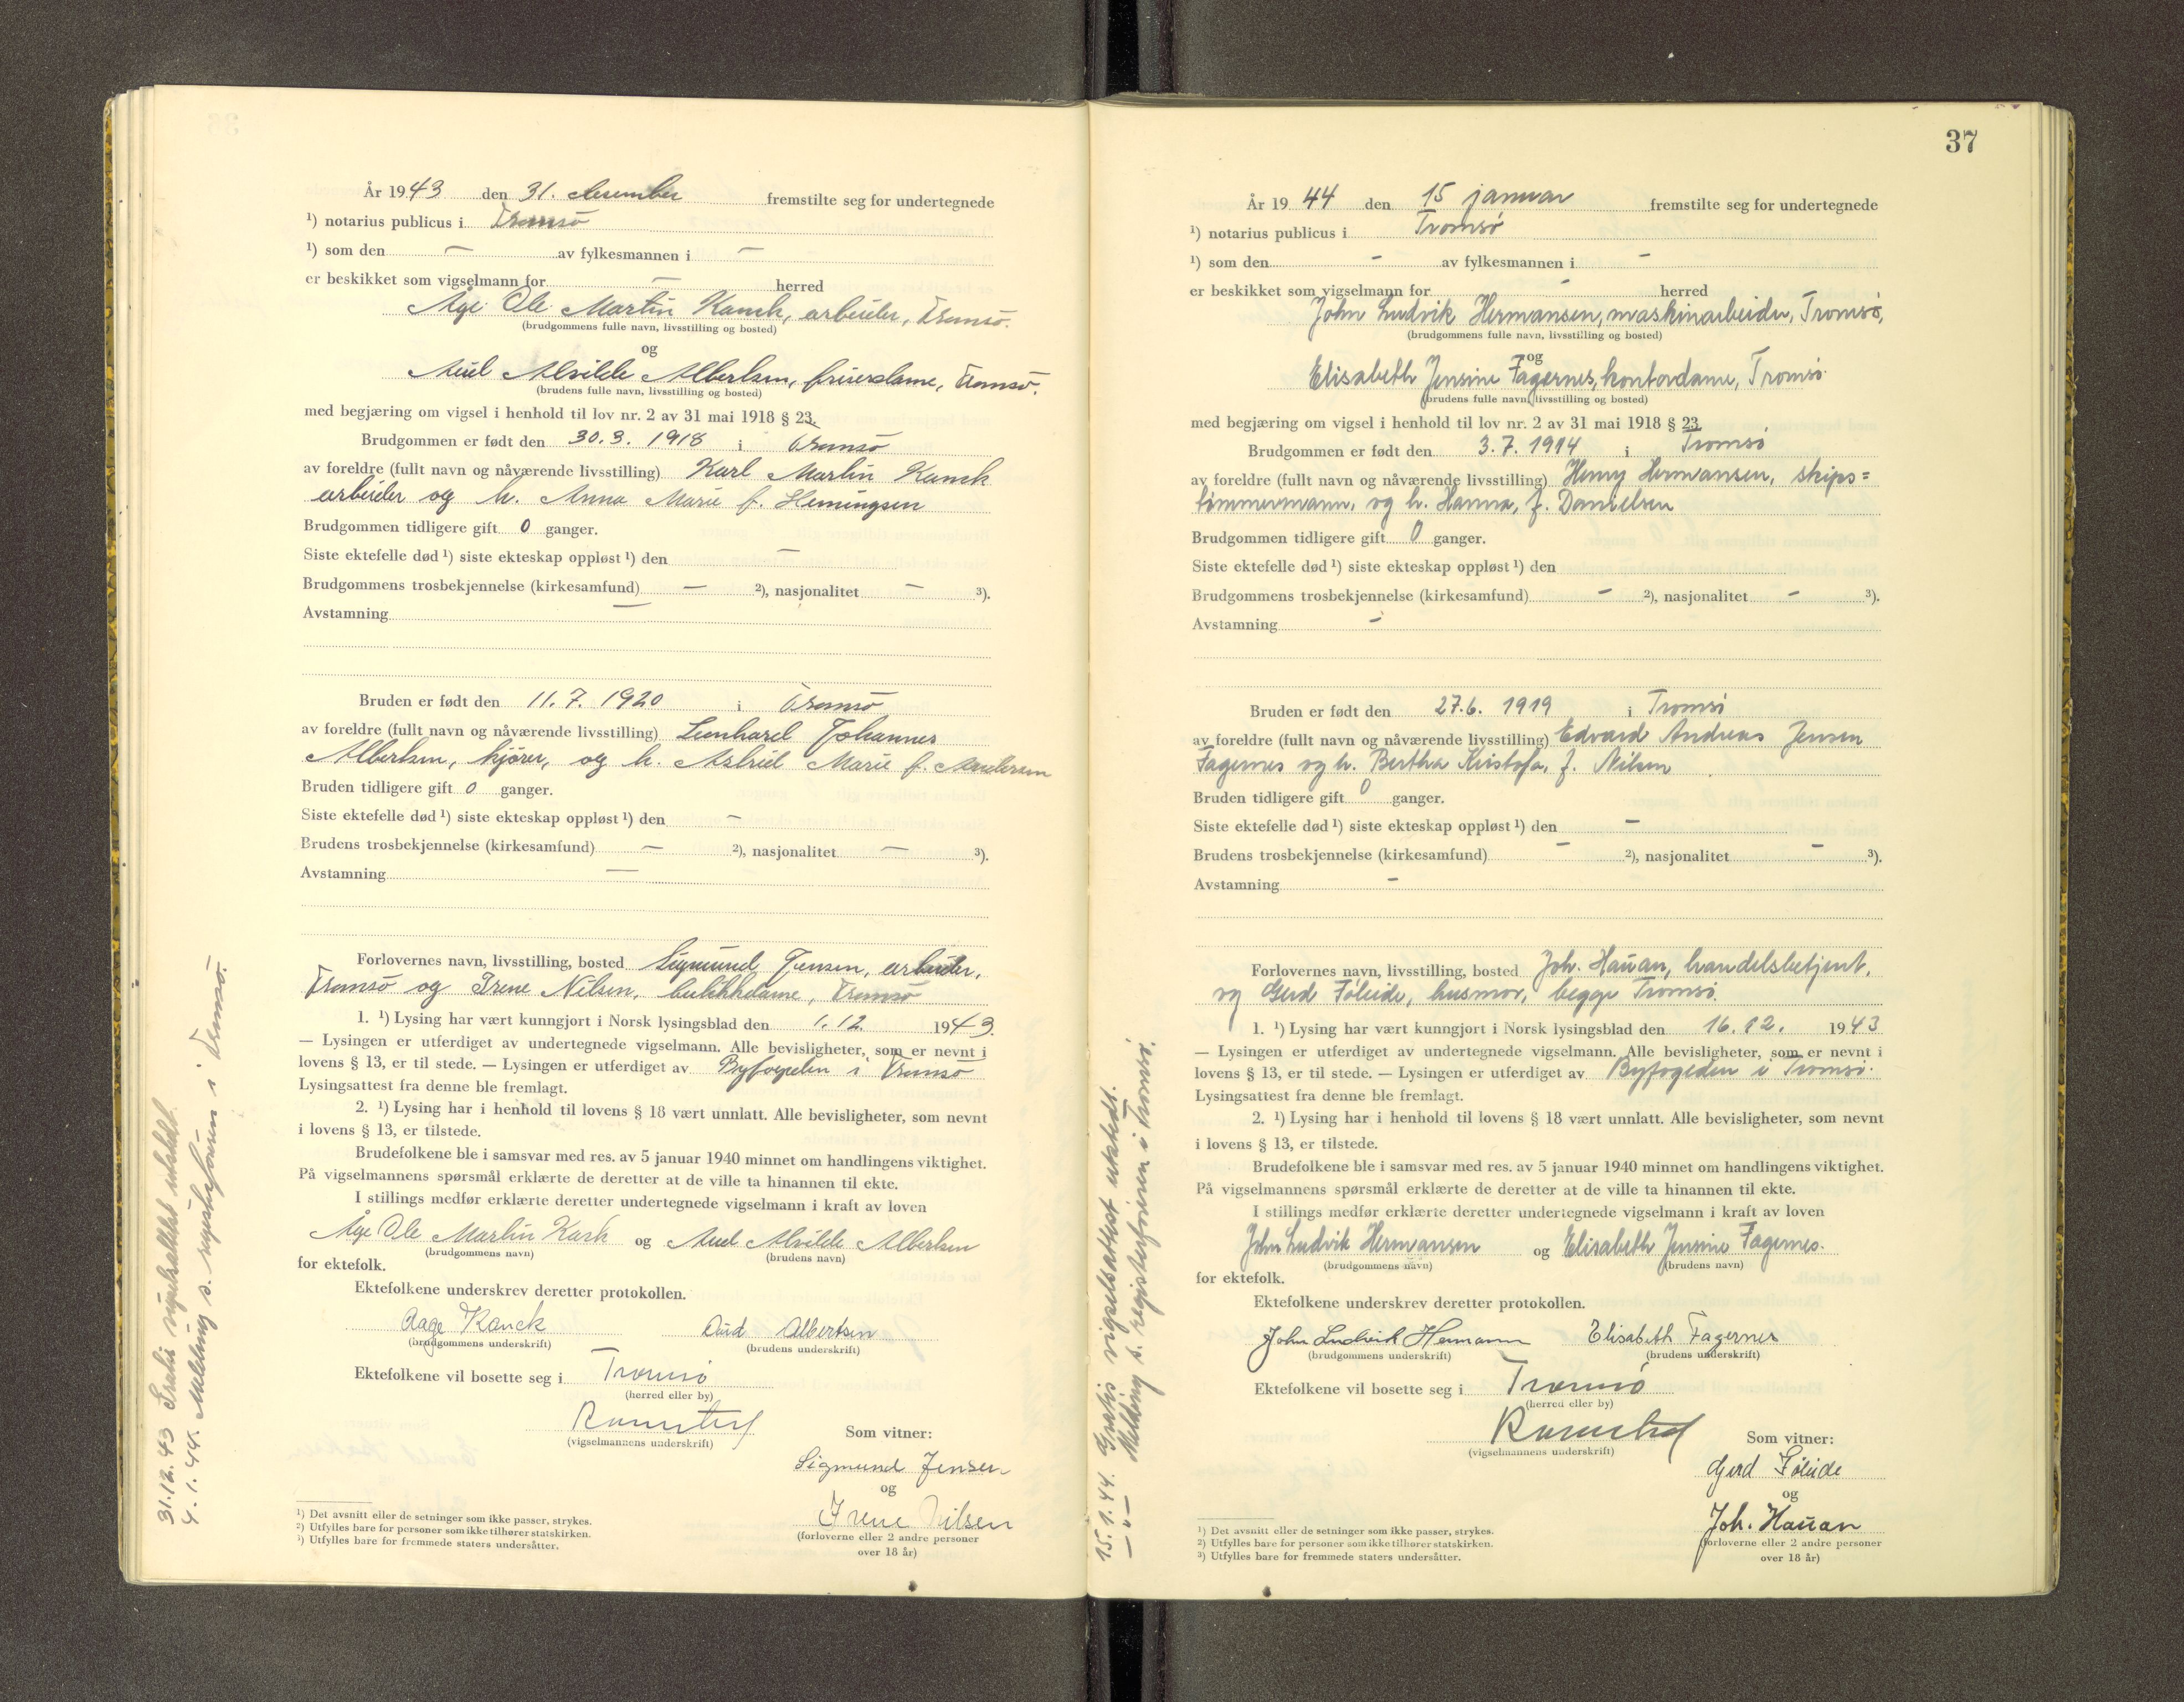 År 1943 den 31. desember fremstilte seg for undertegnede
¹) notarius publicus i Tromsø
¹) som den — av fylkesmannen i —
er beskikket som vigselmann for — herred
Åge Ole Martin Kanck, arbeider, Tromsø.
(brudgommens fulle navn, livsstilling og bosted)
og
Aud Alvilde Albertsen, friserdame, Tromsø.
(brudens fulle navn, livsstilling og bosted)
med begjæring om vigsel i henhold til lov nr. 2 av 31 mai 1918 § 23.
Brudgommen er født den 30.3. 1918 i Tromsø
av foreldre (fullt navn og nåværende livsstilling) Karl Martin Kanck
arbeider og h. Anna Marie f. Hemingsen
Brudgommen tidligere gift 0 ganger.
Siste ektefelle død ¹) siste ekteskap oppløst ¹) den —
Brudgommens trosbekjennelse (kirkesamfund) — ²), nasjonalitet — ³).
Avstamning —
Bruden er født den 11.7. 1920 i Tromsø
av foreldre (fullt navn og nåværende livsstilling) Leonhard Johannes
Albertsen, kjører, og h. Astrid Marie f. Andersen
Bruden tidligere gift 0 ganger.
Siste ektefelle død ¹) siste ekteskap oppløst ¹) den —
Brudens trosbekjennelse (kirkesamfund) — ²), nasjonalitet — ³).
Avstamning —
Forlovernes navn, livsstilling, bosted Sigmund Jensen, arbeider,
Tromsø og Irene Nilsen, butikkdame, Tromsø
1. ¹) Lysing har vært kunngjort i Norsk lysingsblad den 1.12. 1943.
— Lysingen er utferdiget av undertegnede vigselmann. Alle bevisligheter, som er nevnt i
lovens § 13, er til stede. — Lysingen er utferdiget av Byfogden i Tromsø
Lysingsattest fra denne ble fremlagt.
2. ¹) Lysing har i henhold til lovens § 18 vært unnlatt. Alle bevisligheter, som nevnt
i lovens § 13, er tilstede.
Brudefolkene ble i samsvar med res. av 5 januar 1940 minnet om handlingens viktighet.
På vigselmannens spørsmål erklærte de deretter at de ville ta hinannen til ekte.
I stillings medfør erklærte deretter undertegnede vigselmann i kraft av loven
Åge Ole Martin Kack og Aud Alvilde Albertsen
(brudgommens navn) (brudens navn)
for ektefolk.
Ektefolkene underskrev deretter protokollen.
Aage Kanck Aud Albertsen
(brudgommens underskrift) (brudens underskrift)
Ektefolkene vil bosette seg i Tromsø
(herred eller by)
(vigselmannens underskrift)
Som vitner:
Sigmund Jensen
og
Irene Nilsen
(forloverne eller 2 andre personer
over 18 år)
¹) Det avsnitt eller de setninger som ikke passer, strykes.
²) Utfylles bare for personer som ikke tilhører statskirken.
³) Utfylles bare for fremmede staters undersåtter.
31.12.43 Gratis vigselsattest utstedt.
4.1.44. Melding s. registerføreren i Tromsø.
37
År 1944 den 15 januar fremstilte seg for undertegnede
¹) notarius publicus i Tromsø
¹) som den - av fylkesmannen i -
er beskikket som vigselmann for - herred
John Ludvik Hermansen, maskinarbeider, Tromsø,
(brudgommens fulle navn, livsstilling og bosted)
og
Elisabeth Jensine Fagernes, kontordame, Tromsø
(brudens fulle navn, livsstilling og bosted)
med begjæring om vigsel i henhold til lov nr. 2 av 31 mai 1918 § 23.
Brudgommen er født den 3.7. 1914 i Tromsø
av foreldre (fullt navn og nåværende livsstilling) Henry Hermansen, skips=
tømmermann, og h. Hanna, f. Danielsen
Brudgommen tidligere gift 0 ganger.
Siste ektefelle død ¹) siste ekteskap oppløst ¹) den
Brudgommens trosbekjennelse (kirkesamfund) - ²), nasjonalitet - ³).
Avstamning -
Bruden er født den 27.6. 1919 i Tromsø
av foreldre (fullt navn og nåværende livsstilling) Edvard Andreas Jensen
Fagernes og h. Bertha Kristofa, f. Nilsen
Bruden tidligere gift 0 ganger.
Siste ektefelle død ¹) siste ekteskap oppløst ¹) den -
Brudens trosbekjennelse (kirkesamfund) - ²), nasjonalitet - ³).
Avstamning -
Forlovernes navn, livsstilling, bosted Joh. Hauan, handelsbetjent,
og Gerd Føleide, husmor, begge Tromsø.
1. ¹) Lysing har vært kunngjort i Norsk lysingsblad den 16.12. 1943
— Lysingen er utferdiget av undertegnede vigselmann. Alle bevisligheter, som er nevnt i
lovens § 13, er til stede. — Lysingen er utferdiget av Byfogden i Tromsø.
Lysingsattest fra denne ble fremlagt.
2. ¹) Lysing har i henhold til lovens § 18 vært unnlatt. Alle bevisligheter, som nevnt
i lovens § 13, er tilstede.
Brudefolkene ble i samsvar med res. av 5 januar 1940 minnet om handlingens viktighet.
På vigselmannens spørsmål erklærte de deretter at de ville ta hinannen til ekte.
I stillings medfør erklærte deretter undertegnede vigselmann i kraft av loven
John Ludvik Hermansen og Elisabeth Jensine Fagernes.
(brudgommens navn) (brudens navn)
for ektefolk.
Ektefolkene underskrev deretter protokollen.
John Ludvik Hermansen Elisabeth Fagernes
(brudgommens underskrift) (brudens underskrift)
Ektefolkene vil bosette seg i Tromsø
(herred eller by)
(vigselmannens underskrift)
Som vitner:
Gerd Føleide
og
Joh. Hauan
(forloverne eller 2 andre personer
over 18 år)
¹) Det avsnitt eller de setninger som ikke passer, strykes.
²) Utfylles bare for personer som ikke tilhører statskirken.
³) Utfylles bare for fremmede staters undersåtter.
15.1.44. Gratis vigselsattest utstedt.
—"— Melding s. registerføreren i Tromsø.